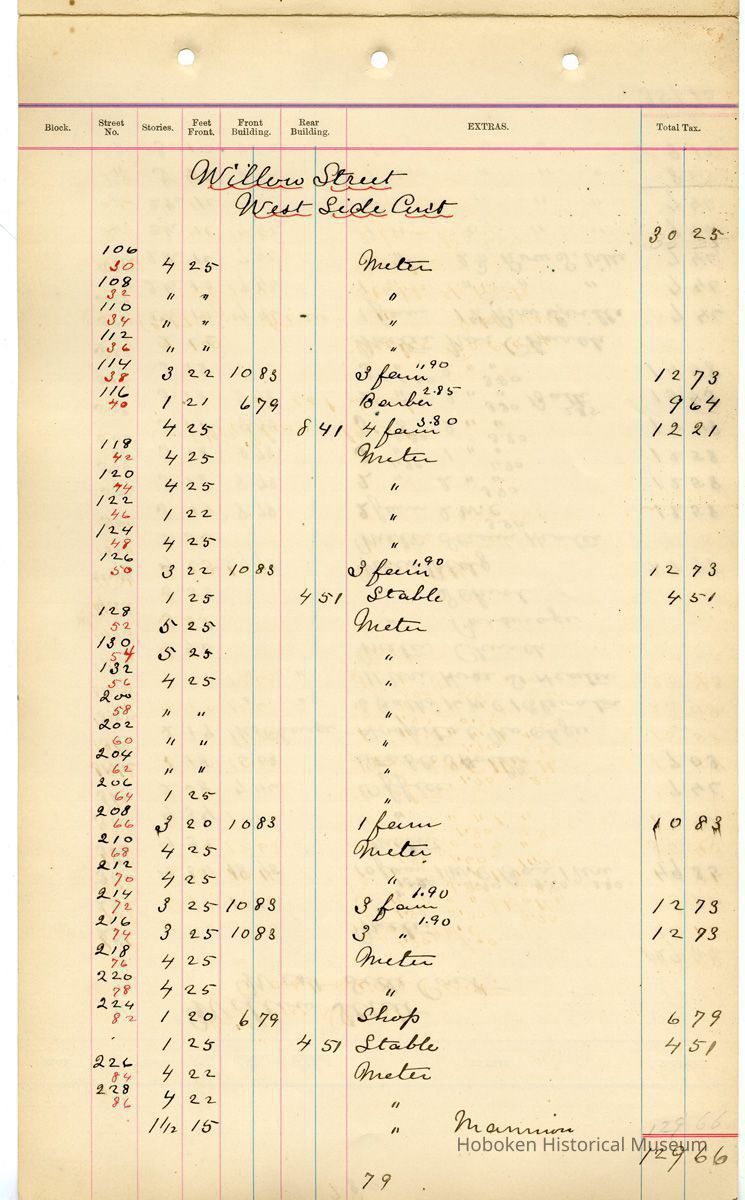 Block. Street No. Stories. Feet Front. Front Building. Rear Building. EXTRAS. Total Tax.
Willow Street
West Side Con't
30 25
106
30 4 25 Meter
108
32 " " "
110
34 " " "
112
36 " " "
114
38 3 22 10 83 3 fam 1.90 12 73
116
40 1 21 6 79 Barber 2.85 9 64
4 25 8 41 4 fam 3.80 12 21
118
42 4 25 Meter
120
44 4 25 "
122
46 1 22 "
124
48 4 25 "
126
50 3 22 10 83 3 fam 1.90 12 73
1 25 4 51 Stable 4 51
128
52 5 25 Meter
130
54 5 25 "
132
56 4 25 "
200
58 " " "
202
60 " " "
204
62 " " "
206
64 1 25 "
208
66 3 20 10 83 1 fam 10 83
210
68 4 25 Meter
212
70 4 25 "
214
72 3 25 10 83 3 fam 1.90 12 73
216
74 3 25 10 83 3 " 1.90 12 73
218
76 4 25 Meter
220
78 4 25 "
224
82 1 20 6 79 Shop 6 79
1 25 4 51 Stable 4 51
226
84 4 22 Meter
228
86 4 22 "
1 1/2 15 " Mannion 129 66
Hoboken Historical Museum
129 66
79